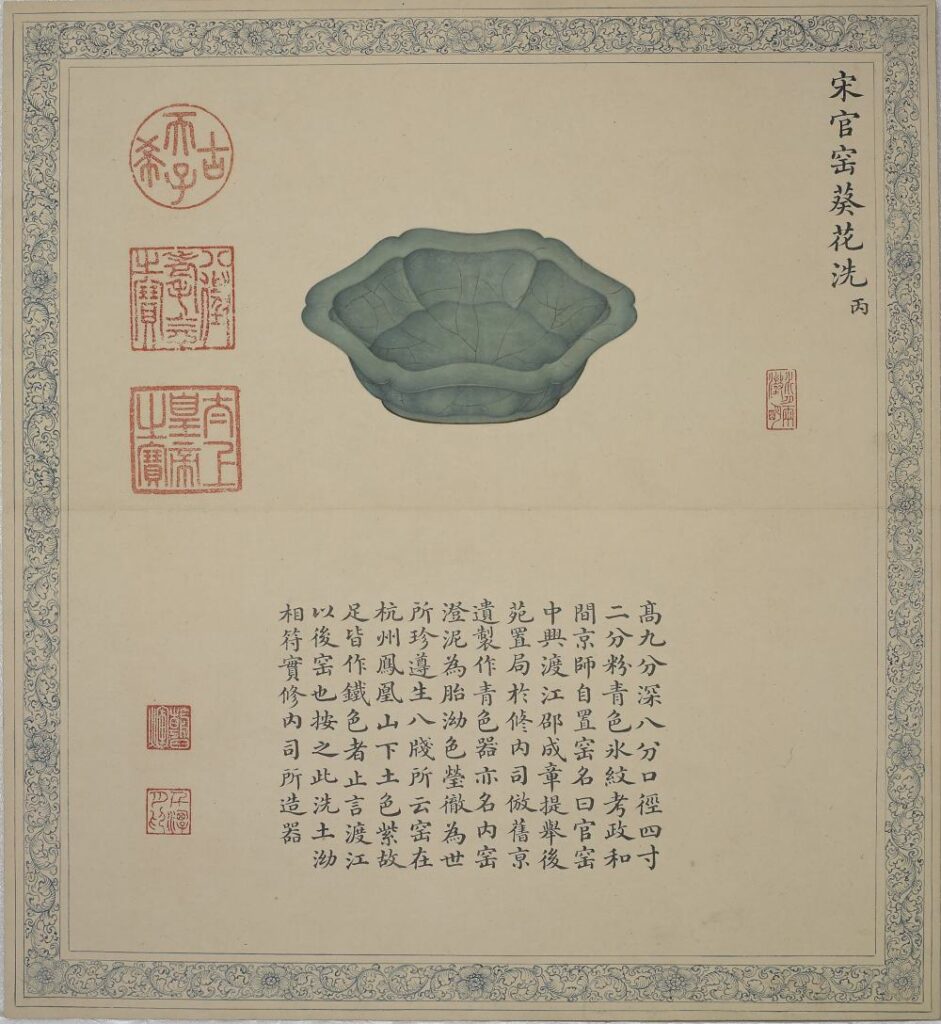 宋官窑葵花洗 丙
水月兩澂明
古希天子
八徵耄念之寶
太上皇帝之寶
髙九分深八分口徑四寸
二分粉青色氷紋考政和
間京師自置窑名曰官窑
中興渡江邵成章提舉後
苑置局於修内司倣舊京
遺製作青色器亦名内窑
澄泥為胎泑色瑩徹為世
所珍遵生八牋所云窑在
杭州鳳凰山下土色紫故
足皆作鐵色者止言渡江
以後窑也按之此洗土泑
相符實修内司所造器
乾隆